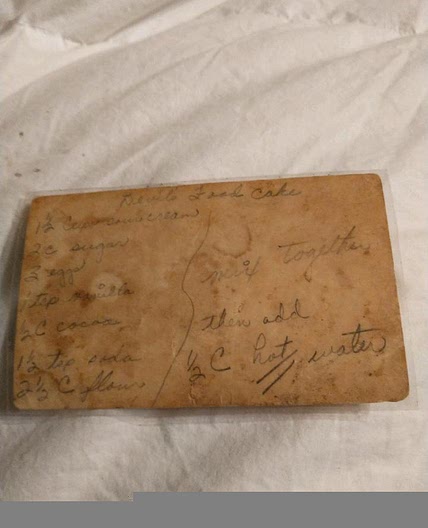 Devils Food Cake
1½ Cup sour cream
2 C sugar
3 eggs
1 tsp vanilla
½ C cocoa
1½ tsp soda
2½ C flour
mix together
then add
½ C hot water